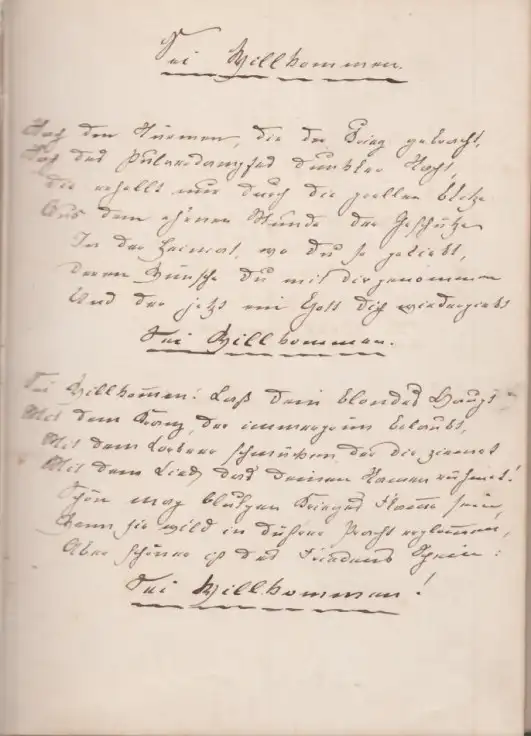 Sei Willkommen.
Nach den Stürmen, die der Krieg gebracht,
Nach des Pulverdampfes dunkler Nacht,
Die erhellt nur durch die grellen Blitze
Aus dem ehernen Munde der Geschütze
In der Heimat, wo du so geliebt,
deren Wünsche Du mit dir genommen
Und der jetzt ein Gott Dich wiedergiebt
Sei Willkommen.
Sei Willkom̅en! Laß dein blondes Haupt
Mit dem Kranz, der immergrün belaubt,
Mit dem Lorbeer schmücken, der dir ziemet
Mit dem Lied, das deinen Namen rühmet!
Schön mag blut'gen Krieges Flam̅e sein,
Wenn sie wild in düstrer Pracht erglommen,
Aber schöner ist des Friedens Schein:
Sei Willkommen!